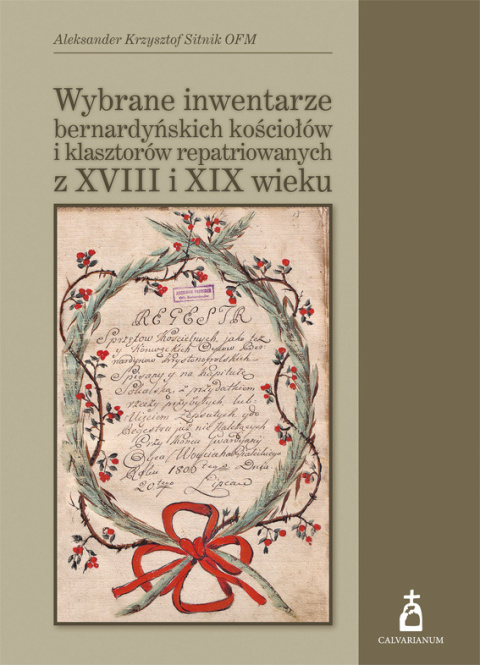 Aleksander Krzysztof Sitnik OFM
Wybrane inwentarze
bernardyńskich kościołów
i klasztorów repatriowanych
z XVIII i XIX wieku
REGESTR
Sprzętow Kościelnych, jako też
y Konwęckich Oyców Ber-
nardynow Krystynopolskich
Spisany na Kapitułę
Sokalską, z przydatkiem
rzeczy przybyłych, lub
Uięciem zepsutych y do
Regestru już nie należących
Przy Końcu Gwardyany
Oyca Woyciecha
Roku 1806 tego Dnia
20. tego Lipca
CALVARIANUM